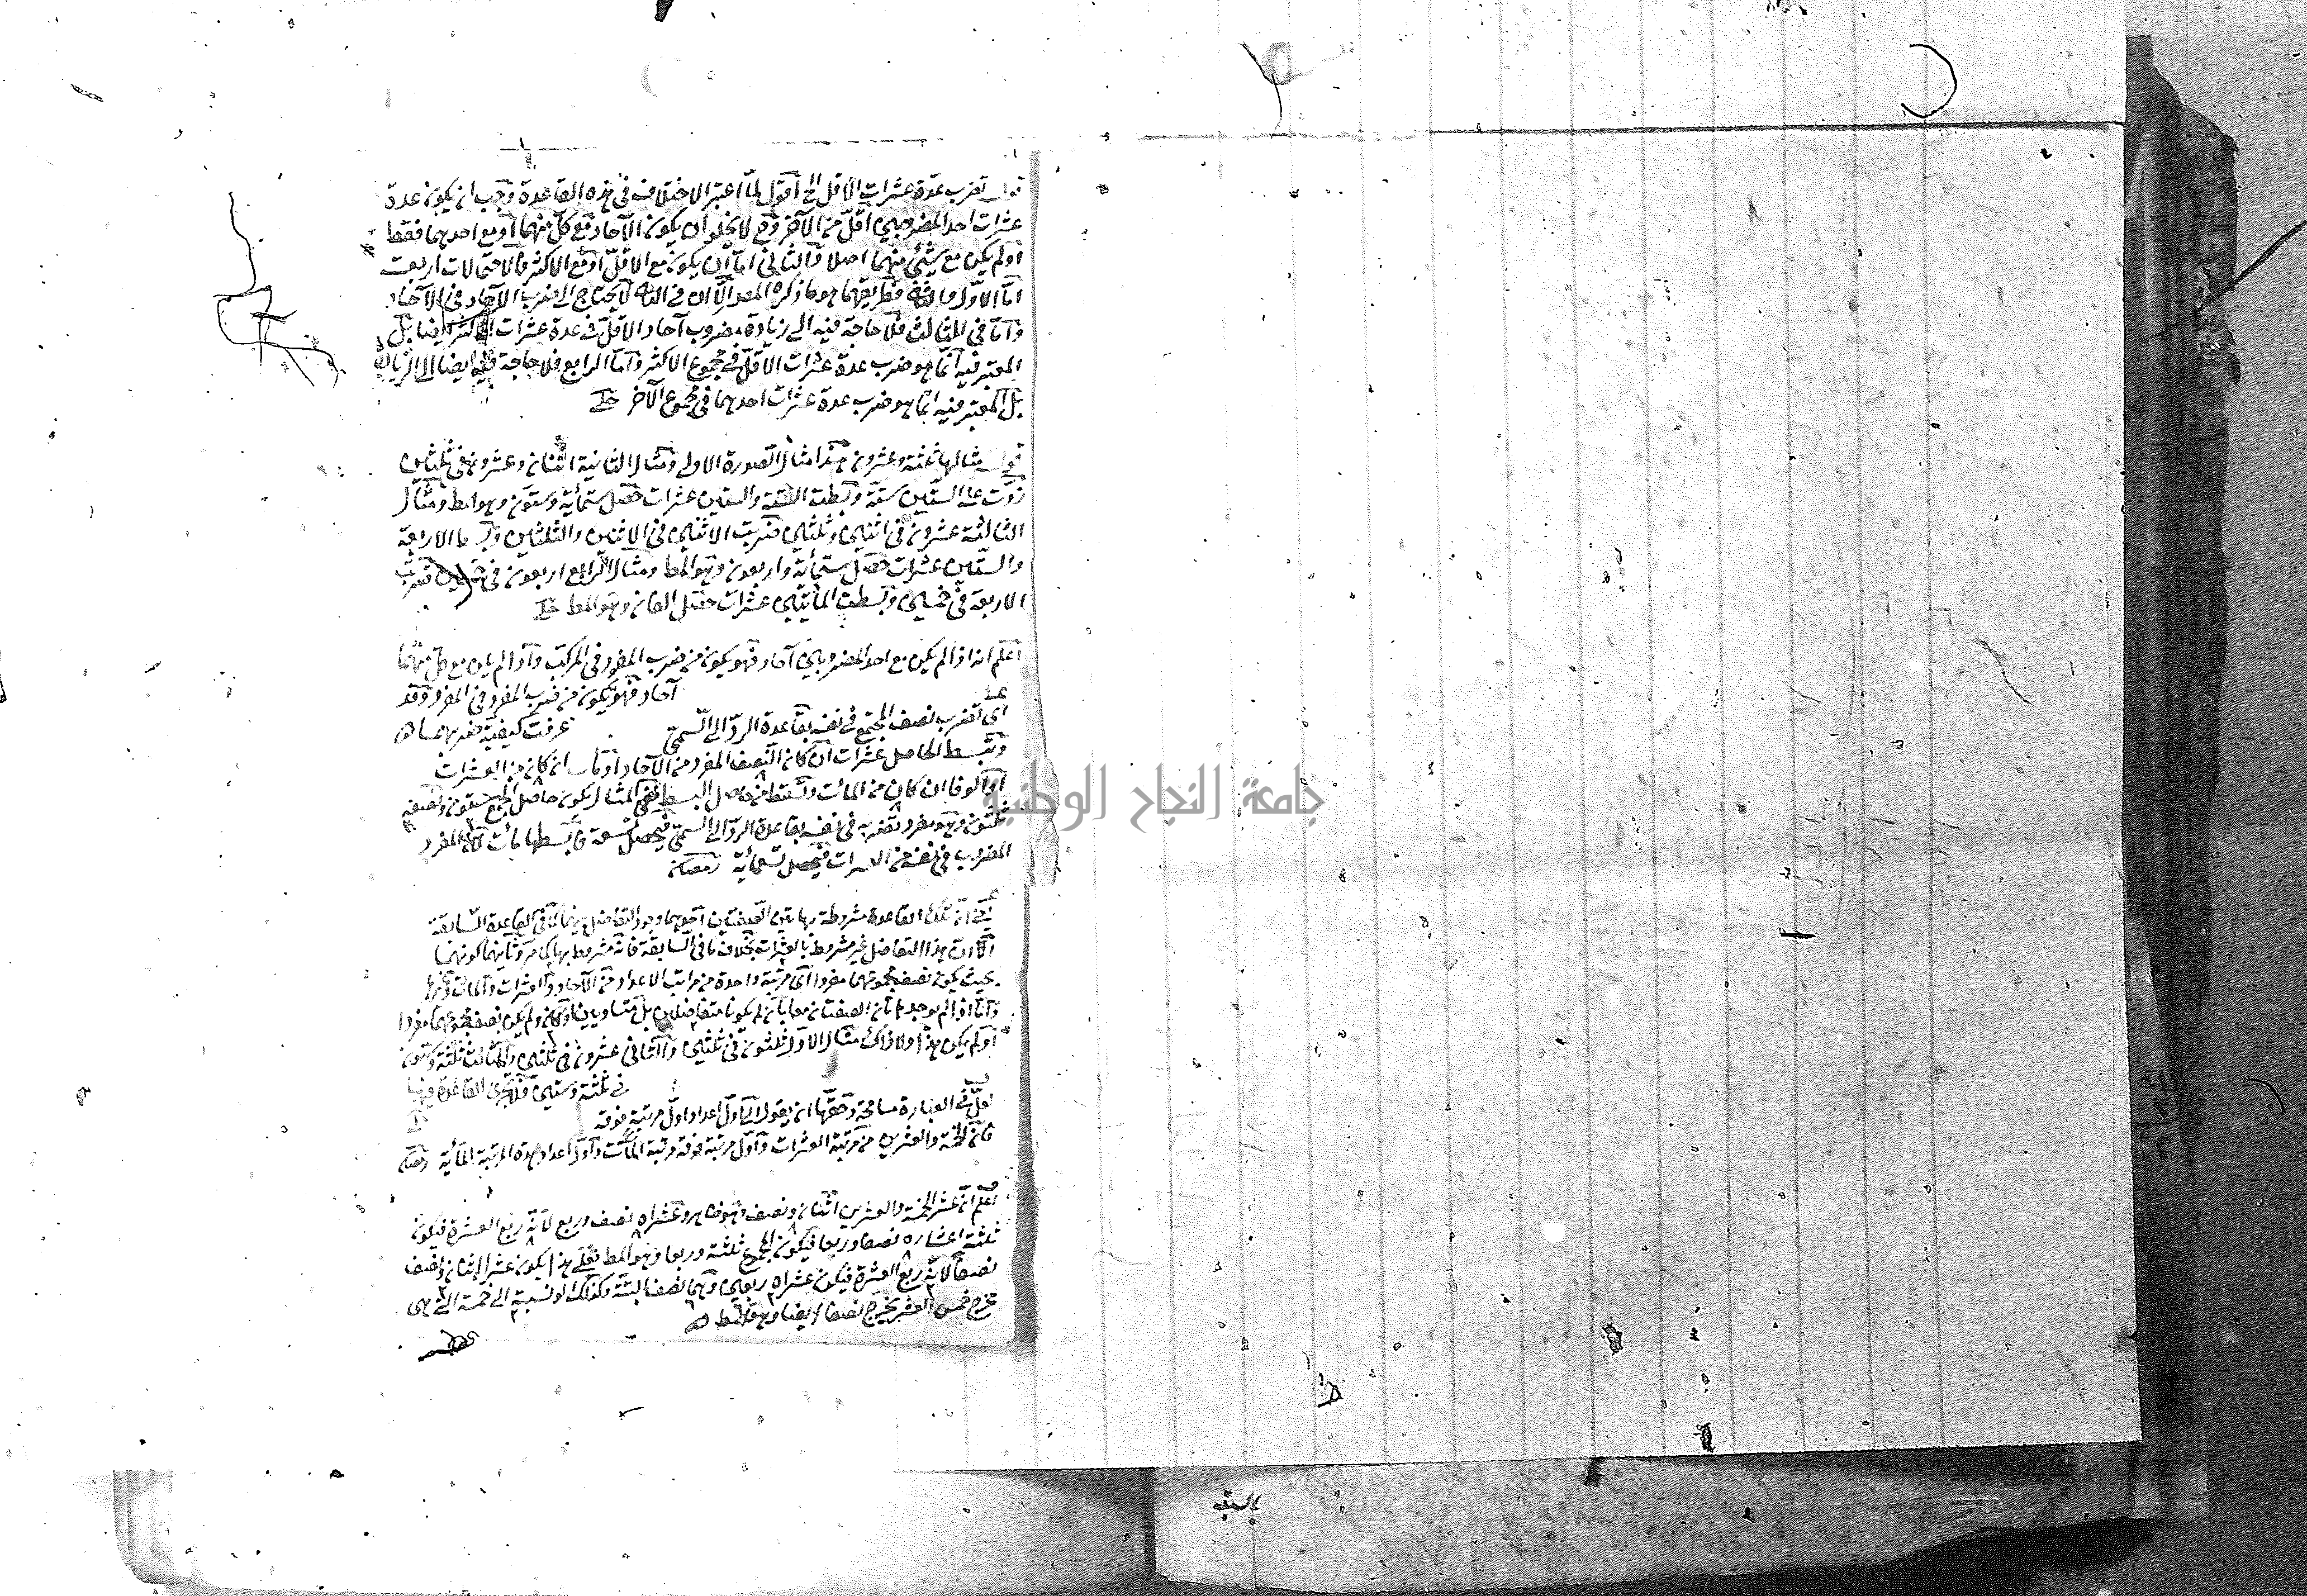 قوله تضرب عدة عشرات الاقل الخ اقول لما اعتبر الاختلاف في هذه القاعدة وجب ان يكون عدة
عشرات احد المضروبين اقل من الآخر وح لا يخلو ان يكون الآحاد مع كل منهما او مع احدهما فقط
او لم يكن مع شيئ منهما اصلا والثاني اما ان يكون مع الاقل او مع الاكثر فالاحتمالات اربعة
اما الاول والثاني فطريقهما هو ما ذكره المص الا ان في الثاني لا يحتاج الى ضرب الآحاد في الآحاد
واما في الثالث فلا حاجة فيه الى زيادة مضروب آحاد الاقل في عدة عشرات الاكثر ايضا بل
المعتبر فيه انما هو ضرب عدة عشرات الاقل في مجموع الاكثر واما الرابع فلا حاجة فيه ايضا الى الزيادة
بل المعتبر فيه انما هو ضرب عدة عشرات احدهما في مجموع الآخر
قوله مثالها ثلثة وعشرون هذا مثال الصورة الاولى ومثال الثانية اثنان وعشرون في ثلثين
زدت على الستين ستة وبسطت الستة والستين عشرات حصل ستمأية وستون وهو المط ومثال
الثالثة عشرون في اثنين وثلثين ضربت الاثنين في الاثنين والثلثين وبسط الاربعة
والستين عشرات حصل ستمأية واربعون وهو المط ومثال الرابع اربعون في خمسين تضرب
الاربعة في خمسين وبسطت المأيتين عشرات حصل الفان وهو المط
اعلم انه اذا لم يكن مع احد المضروبين آحاد فهو يكون من ضرب المفرد في المركب واذا لم يكن مع كل منهما
آحاد فهو يكون من ضرب المفرد في المفرد وقد
عرفت كيفية ضربهما
اي تضرب نصف المجتمع في نفسه بقاعدة الرد الى السمي
وتبسط الحاصل عشرات ان كان النصف المفرد من الآحاد او مآت ان كان من العشرات
او الوفا ان كان من المائت وتسقط من حاصل البسط ففي المثال يكون حاصل الجمع ستون ونصفه
ثلثون وهو مفرد تضربه في نفسه بقاعدة الرد الى السمي فيحصل تسعة فابسطها مائت لان المفرد
المضروب في نفسه من العشرات فيحصل تسعمائة
تلك القاعدة مشروطة بهاتين الصفتين احديهما وجود التفاضل بينهما كما في القاعدة السابقة
الا ان هذا التفاضل غير مشروط بالعشرات بخلاف ما في السابقة فانه مشروط بها كما مر وثانيهما كونهما
بحيث يكون نصف مجموعهما مفردا اي مرتبة واحدة من مراتب الاعداد من الآحاد والعشرات والمائت وغيرها
واما اذا لم يوجد هاتان الصفتان معا بان لم يكونا متفاضلين بل متساويين او كان ولم يكن نصف مجموعهما مفردا
او لم يكن هذا ولا ذاك مثال الاول ثلثون في ثلثين والثاني عشرون في ثلثين والثالث ثلثة وستون
في ثلثة وستين فلا يجري القاعدة فيها
لعل في العبارة مسامحة وحقها ان يقول الى اول اعداد اول مرتبة فوقه
فان الخمسة والعشرين من مرتبة العشرات واول مرتبة فوقه مرتبة المائت واول اعداد هذه المرتبة المأية
اعلم ان عشر الخمسة والعشرين اثنان ونصف وهو ظاهر وعشراه نصف وربع لانه ربع العشرة فيكون
ثلثة اعشاره نصفا وربعا فيكون الجميع ثلثة وربعا وهو المط فعلى هذا يكون عشر الاثنان ونصف
نصفا لانه ربع العشرة فيكون عشراه ربعين وهما نصف البتة وكذلك لو نسبته الى خمسة التي هي
مخرج خمس العشر يخرج نصفا ايضا وهو المط
جامعة النجاح الوطنية